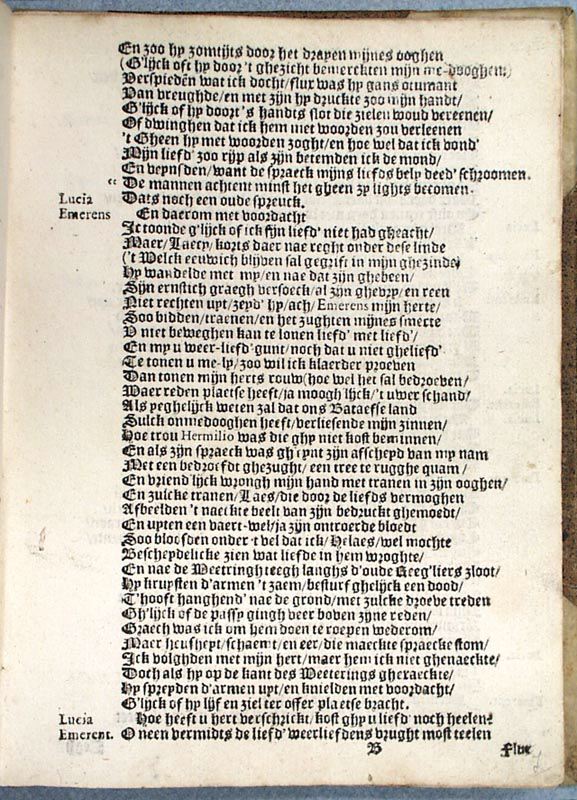 En zoo hy zomtijts door het drayen mijnes ooghen
(G'lijck oft hy door 't ghezicht bemerckten mijn me-dooghen/)
Verspieden wat ick docht/ flux was hy gans
Van vreughde/ en met zijn hy druckte zoo mijn handt/
G'lijck of hy doort 's handts slot die zielen woud vereenen/
Of dwinghen dat ick hem met woorden zou verleenen
't Gheen hy met woorden zoght/ en hoe wel dat ick vond'
Mijn liefd' zoo rijp als zijn betemden ick de mond/
En veynsden/ want de spraeck mijns liefds bely deed' schroomen.
“ De mannen achtent minst het gheen zy lights becomen.
Lucia Dats noch een oude spreuck.
Emerens En daerom met voordacht
Ic toonde g'lijck of ick sijn liefd' niet had gheacht/
Maer/ Laety/ korts daer nae reght onder dese linde
('t Welck eeuwich blijven sal gegrift in mijn ghezinde)
Hy wandelde met my/ en nae dat zijn ghebeen/
Sijn ernstich graegh versoeck/ al zijn ghevry/ en reen
Niet rechten upt/ zeyd' hy/ ach/ Emerens mijn herte/
Soo bidden/ traenen/ en het zughten mijnes smerte
U niet beweghen kan te lonen liefd' met liefd'/
En my u weer-liefd' gunt/ noch dat u niet ghelieft'
Te tonen u me-ly/ zoo wil ick klaerder proeven
Dan tonen mijn herts rouw (hoe wel het sal bedroeven/
Waer reden plaetse heeft/ ja moogh'lijck/ 't uwer schand/
Als yeghelijck weten zal dat ons Bataefse land
Sulck onmedooghen heeft/ verliesende mijn zinnen/
Hoe trou Hermilio was die ghy niet kost beminnen/
En als zijn spraeck was gh'eynt zijn afscheyd van my nam
Met een bedroefdt ghezught/ een tree te rugghe quam/
En vriend'lijck wrongh mijn hand met tranen in zijn ooghen/
En zulcke tranen/ Laes/ die door de liefds vermoghen
Afbeelden 't naeckte beelt van zijn bedruckt ghemoedt/
En upten een vaert-wel/ ja zijn ontroerde bloedt
Soo bloosden onder 't vel dat ick/ Helaes/ wel mochte
Bescheydelicke zien wat liefde in hem wroghte/
En nae de Weetringh teegh langhs d'oude Reeg'liers zloot/
Hy kruysten d'armen 't zaem/ besturf ghelijck een dood/
T'hooft hanghend' nae de grond/ met zulcke droeve treden
Gh'lijck of de passy gingh veer boven zijne reden/
Graech was ick om hem doen te roepen wederom/
Maer heusheyt/ schaemt/ en eer/ die maeckte spraecke stom/
Ick volghden met mijn hert/ maer hem ick niet ghenaeckte/
Doch als hy op de kant des Weeterings gheraeckte/
Hy spreyden d'armen upt/ en knielden met voordacht/
G'lijck of hy lijf en ziel ter offer plaetse bracht.
Lucia Hoe heeft u hert verschrickt/ kost ghy u liefd' noch heelen?
Emerent. O neen vermidts de liefd' weerliefdens vrught most teelen
B flux